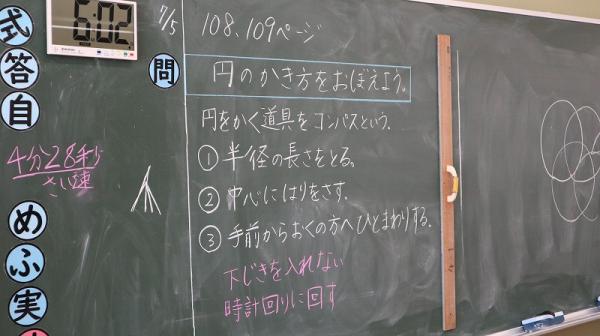 式
答
自
め
ふ
実
6:02
4分28秒
さい速
7/5
108.109ページ
問
円のかき方をおぼえよう。
円をかく道具をコンパスという。
①半径の長さをとる。
②中心にはりをさす。
③手前からおくの方へひとまわりする。
下じきを入れない
時計回りに回す